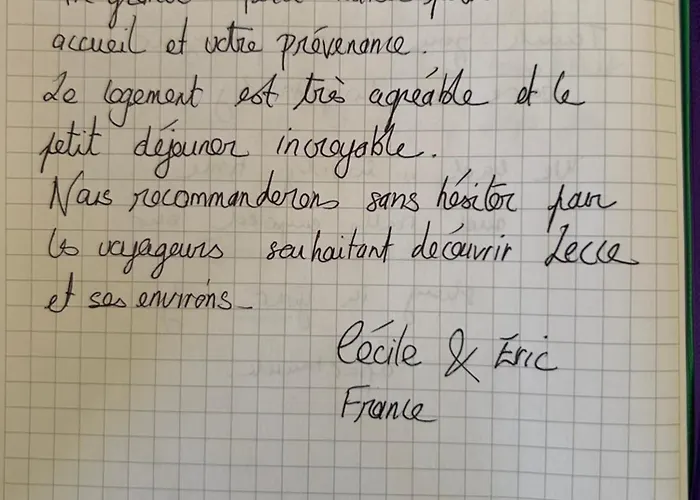 accueil et votre prévenance.
Le logement est très agréable et le
petit déjeuner incroyable.
Nous recommanderons sans hésiter pour
les voyageurs souhaitant découvrir Lecce
et ses environs_
Cécile & Éric
France